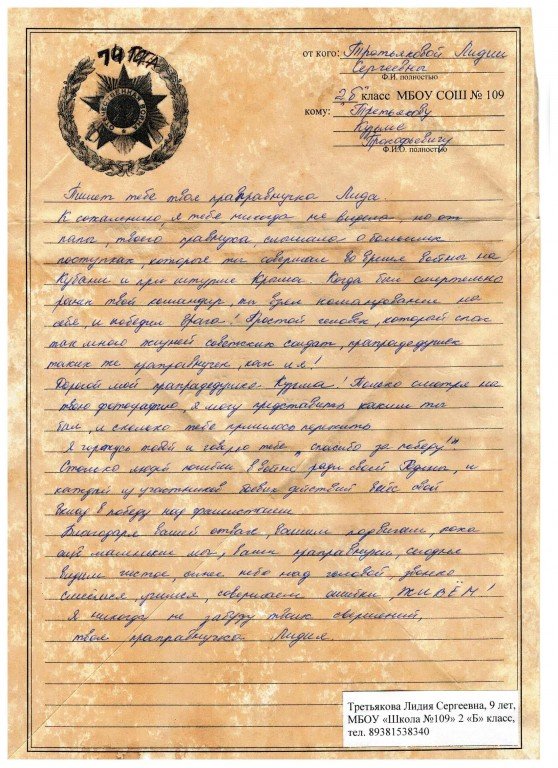 79 ГОДА
ОТЕЧЕСТВЕННАЯ ВОЙНА
от кого: Третьяковой Лидии
Сергеевны
Ф.И. полностью
2 "б" класс МБОУ СОШ № 109
кому: Третьякову
Кузьме
Прокофьевичу
Ф.И.О. полностью
Пишет тебе твоя праправнучка Лида.
К сожалению, я тебя никогда не видела, но от
папы, твоего правнука, слышала о больших
поступках, которые ты совершал во время войны на
Кубани и при штурме Крыма. Когда был смертельно
ранен твой командир, ты взял командование на
себя, и победил врага! Простой человек, который спас
так много жизней советских солдат, прапрадедушек
таких же праправнучек, как и я!
Дорогой мой прапрадедушка Кузьма! Только смотря на
твою фотографию, я могу представить каким ты
был, и сколько тебе пришлось пережить.
Я горжусь тобой и говорю тебе „спасибо за победу!".
Столько людей погибли в войне ради своей Родины, и
каждый из участников боевых действий внёс свой
вклад в победу над фашистами.
Благодаря вашей отваге, вашим подвигам, пока
ещё маленькие мы, ваши праправнуки, сегодня
видим чистое, синее небо над головой, звонко
смеёмся, учимся, совершаем ошибки, ЖИВЁМ!
Я никогда не забуду твоих свершений,
твоя праправнучка Лидия
Третьякова Лидия Сергеевна, 9 лет,
МБОУ «Школа №109» 2 «Б» класс,
тел. 89381538340